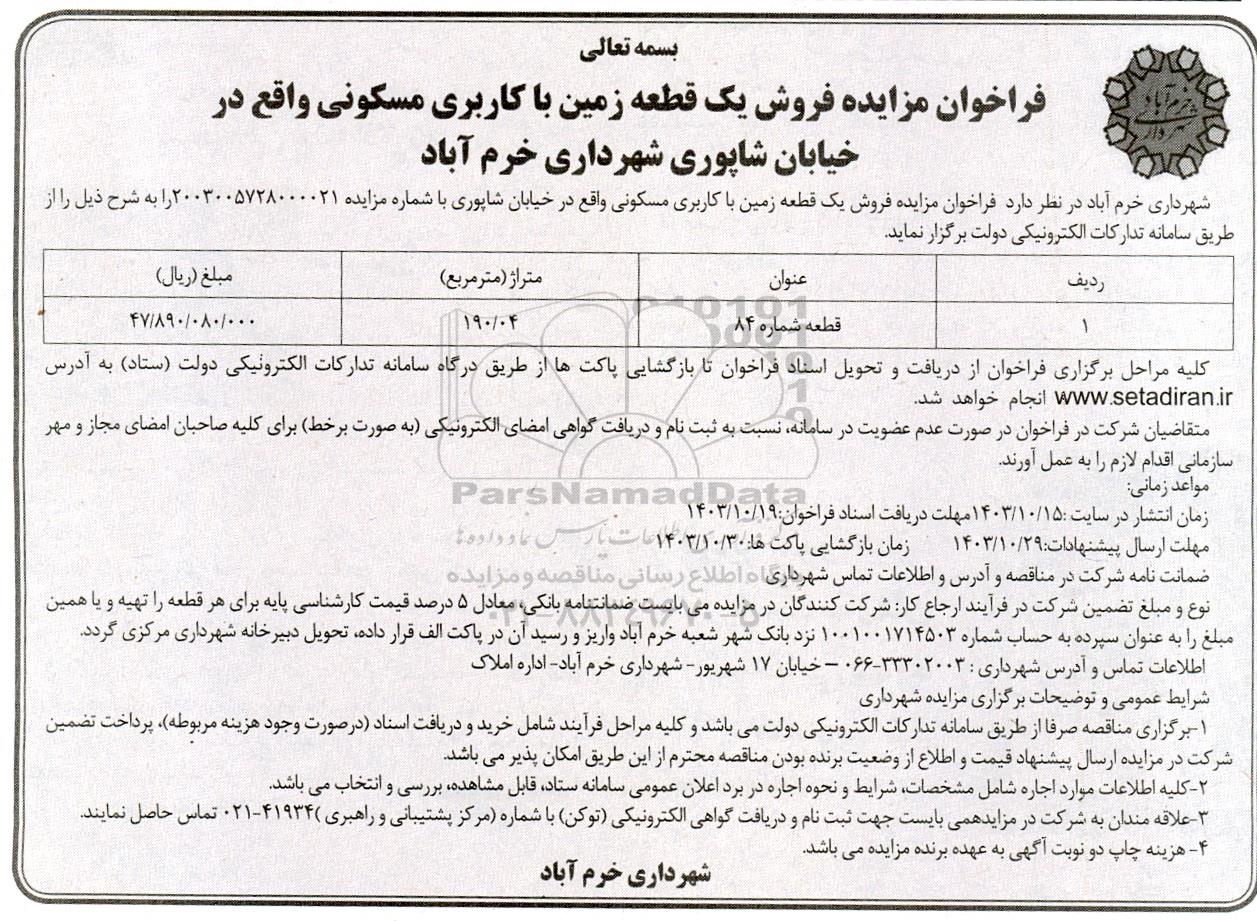 بسمه تعالی
فراخوان مزایده فروش یک قطعه زمین با کاربری مسکونی واقع در
خیابان شاپوری شهرداری خرم آباد
شهرداری خرم آباد در نظر دارد فراخوان مزایده فروش یک قطعه زمین با کاربری مسکونی واقع در خیابان شاپوری با شماره مزایده ۲۰۰۳۰۰۵۷۲۸۰۰۰۰۲۱را به شرح ذیل را از
طریق سامانه تدارکات الکترونیکی دولت برگزار نماید.
ردیف عنوان متراژ (مترمربع) مبلغ (ریال)
۱ قطعه شماره ۸۴ ۱۹۰/۰۴ ۴۷/۸۹۰/۰۸۰/۰۰۰
کلیه مراحل برگزاری فراخوان از دریافت و تحویل اسناد فراخوان تا بازگشایی پاکت ها از طریق درگاه سامانه تدارکات الکترونیکی دولت (ستاد) به آدرس
www.setadiran.ir انجام خواهد شد.
متقاضیان شرکت در فراخوان در صورت عدم عضویت در سامانه، نسبت به ثبت نام و دریافت گواهی امضای الکترونیکی (به صورت برخط) برای کلیه صاحبان امضای مجاز و مهر
سازمانی اقدام لازم را به عمل آورند.
ParsNamadData
مواعد زمانی:
زمان انتشار در سایت :۱۴۰۳/۱۰/۱۵مهلت دریافت اسناد فراخوان:۱۴۰۳/۱۰/۱۹
مهلت ارسال پیشنهادات:۱۴۰۳/۱۰/۲۹ زمان بازگشایی پاکت ها:۱۴۰۳/۱۰/۳۰
ضمانت نامه شرکت در مناقصه و آدرس و اطلاعات تماس شهرداری
پایگاه اطلاع رسانی مناقصه و مزایده
نوع و مبلغ تضمین شرکت در فرآیند ارجاع کار: شرکت کنندگان در مزایده می بایست ضمانتنامه بانکی، معادل ۵ درصد قیمت کارشناسی پایه برای هر قطعه را تهیه و یا همین
مبلغ را به عنوان سپرده به حساب شماره ۱۰۰۱۰۰۱۷۱۴۵۰۳ نزد بانک شهر شعبه خرم آباد واریز و رسید آن در پاکت الف قرار داده، تحویل دبیرخانه شهرداری مرکزی گردد.
اطلاعات تماس و آدرس شهرداری : ۳۳۳۰۲۰۰۳-۰۶۶ – خیابان ۱۷ شهریور- شهرداری خرم آباد- اداره املاک
شرایط عمومی و توضیحات برگزاری مزایده شهرداری
۱-برگزاری مناقصه صرفا از طریق سامانه تدارکات الکترونیکی دولت می باشد و کلیه مراحل فرآیند شامل خرید و دریافت اسناد (درصورت وجود هزینه مربوطه)، پرداخت تضمین
شرکت در مزایده ارسال پیشنهاد قیمت و اطلاع از وضعیت برنده بودن مناقصه محترم از این طریق امکان پذیر می باشد.
۲-کلیه اطلاعات موارد اجاره شامل مشخصات، شرایط و نحوه اجاره در برد اعلان عمومی سامانه ستاد، قابل مشاهده، بررسی و انتخاب می باشد.
۳-علاقه مندان به شرکت در مزایدهمی بایست جهت ثبت نام و دریافت گواهی الکترونیکی (توکن) با شماره (مرکز پشتیبانی و راهبری )۴۱۹۳۴-۰۲۱ تماس حاصل نمایند.
۴- هزینه چاپ دو نوبت آگهی به عهده برنده مزایده می باشد.
شهرداری خرم آباد